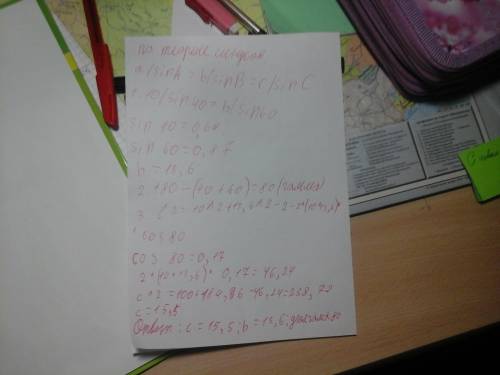 по теореме синусов
a/sinA = b/sinB = c/sinC
1. 10/sin40 = b/sin60
sin 40 = 0,64
sin 60 = 0,87
b = 13,6
2 180 - (40 + 60) = 80 (
3 c^2 = 10^2 + 13,6^2 - 2 * (10*13,6)*
* cos 80
cos 80 = 0,17
2*(10*13,6)* 0,17 = 46,24
c^2 = 100+184,96-46,24=238,72
c = 15,5
Ответ: c = 15,5; b = 13,6; 80